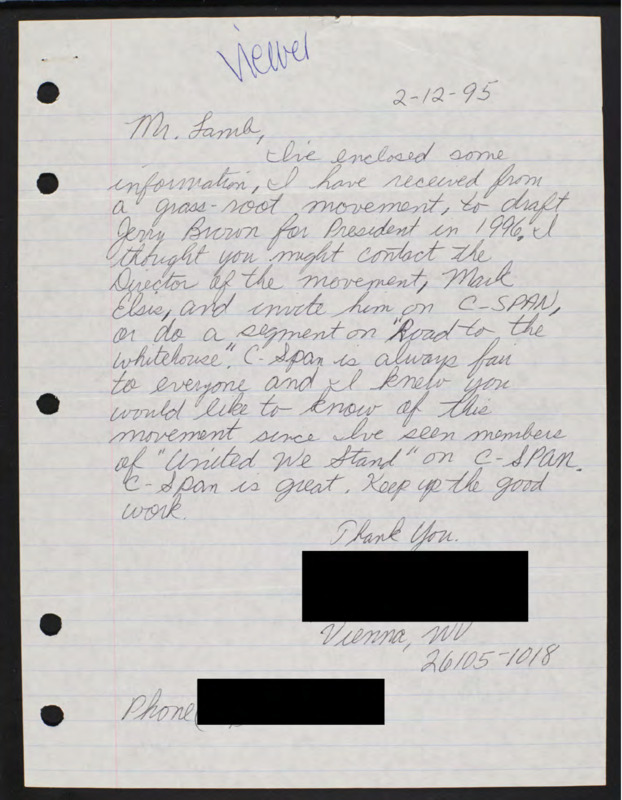 Viewer
2-12-95
Mr. Lamb,
I've enclosed some
information, I have received from
a grass-root movement, to draft
Jerry Brown for President in 1996. I
thought you might contact the
Director of the movement, Mark
Elsis, and invite him on C-SPAN,
or do a segment on "Road to the
whitehouse". C-Span is always fair
to everyone and I knew you
would like to know of this
movement since I've seen members
of "United We Stand" on C-SPAN.
C-Span is great. Keep up the good
work.
Thank You.
Vienna, WV
26105-1018
Phone(